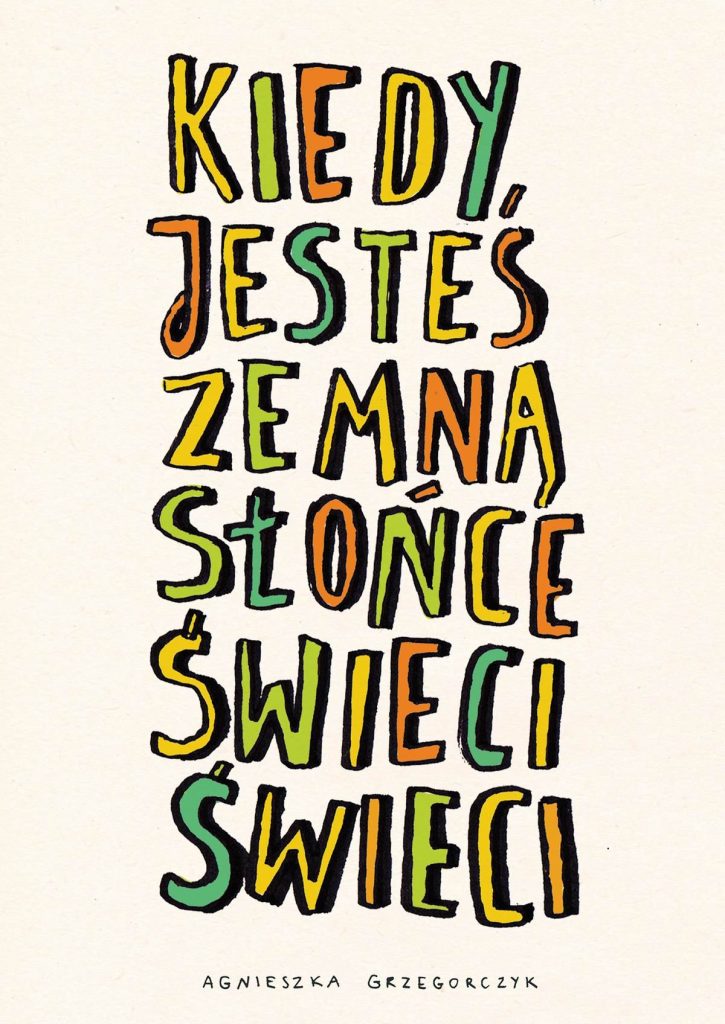 KIEDY
JESTEŚ
ZE MNĄ
SŁOŃCE
ŚWIECI
ŚWIECI
AGNIESZKA GRZEGORCZYK